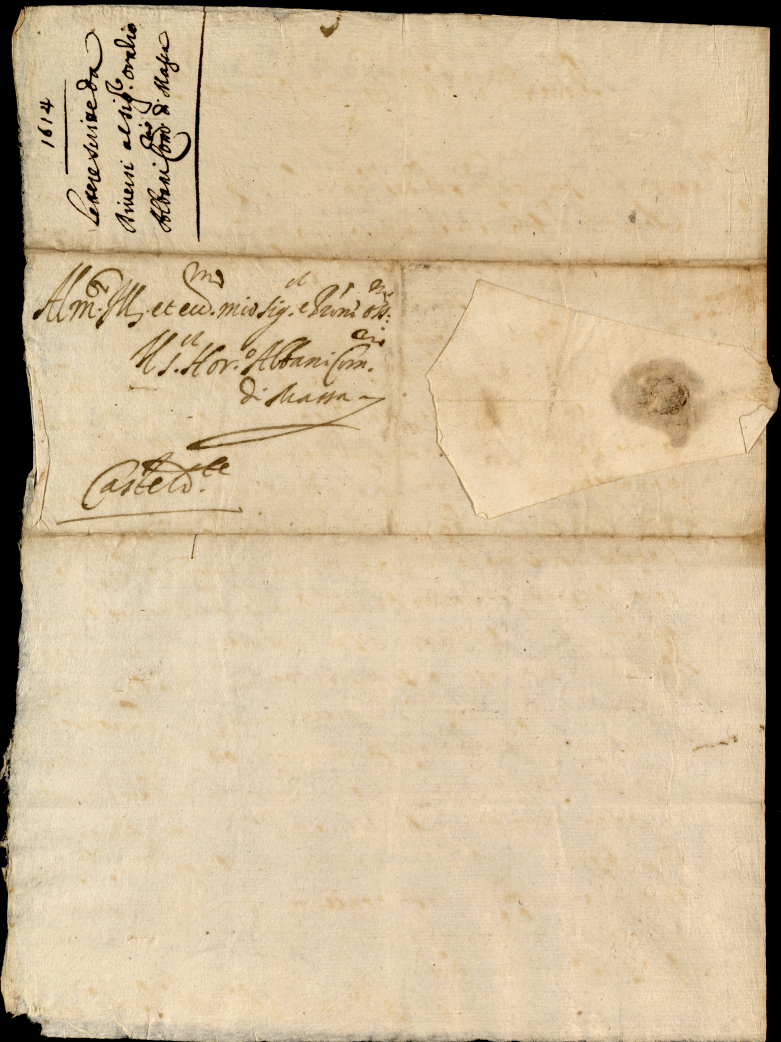 1614
Letere scrite da
diversi al sig.re oratio
Albani Com.rio di Massa
Al m.to Ill. et ecc.mo mio sig.r e Pron
Il s.r Hor.o Albani Com.rio
di Massa
Casteld.te